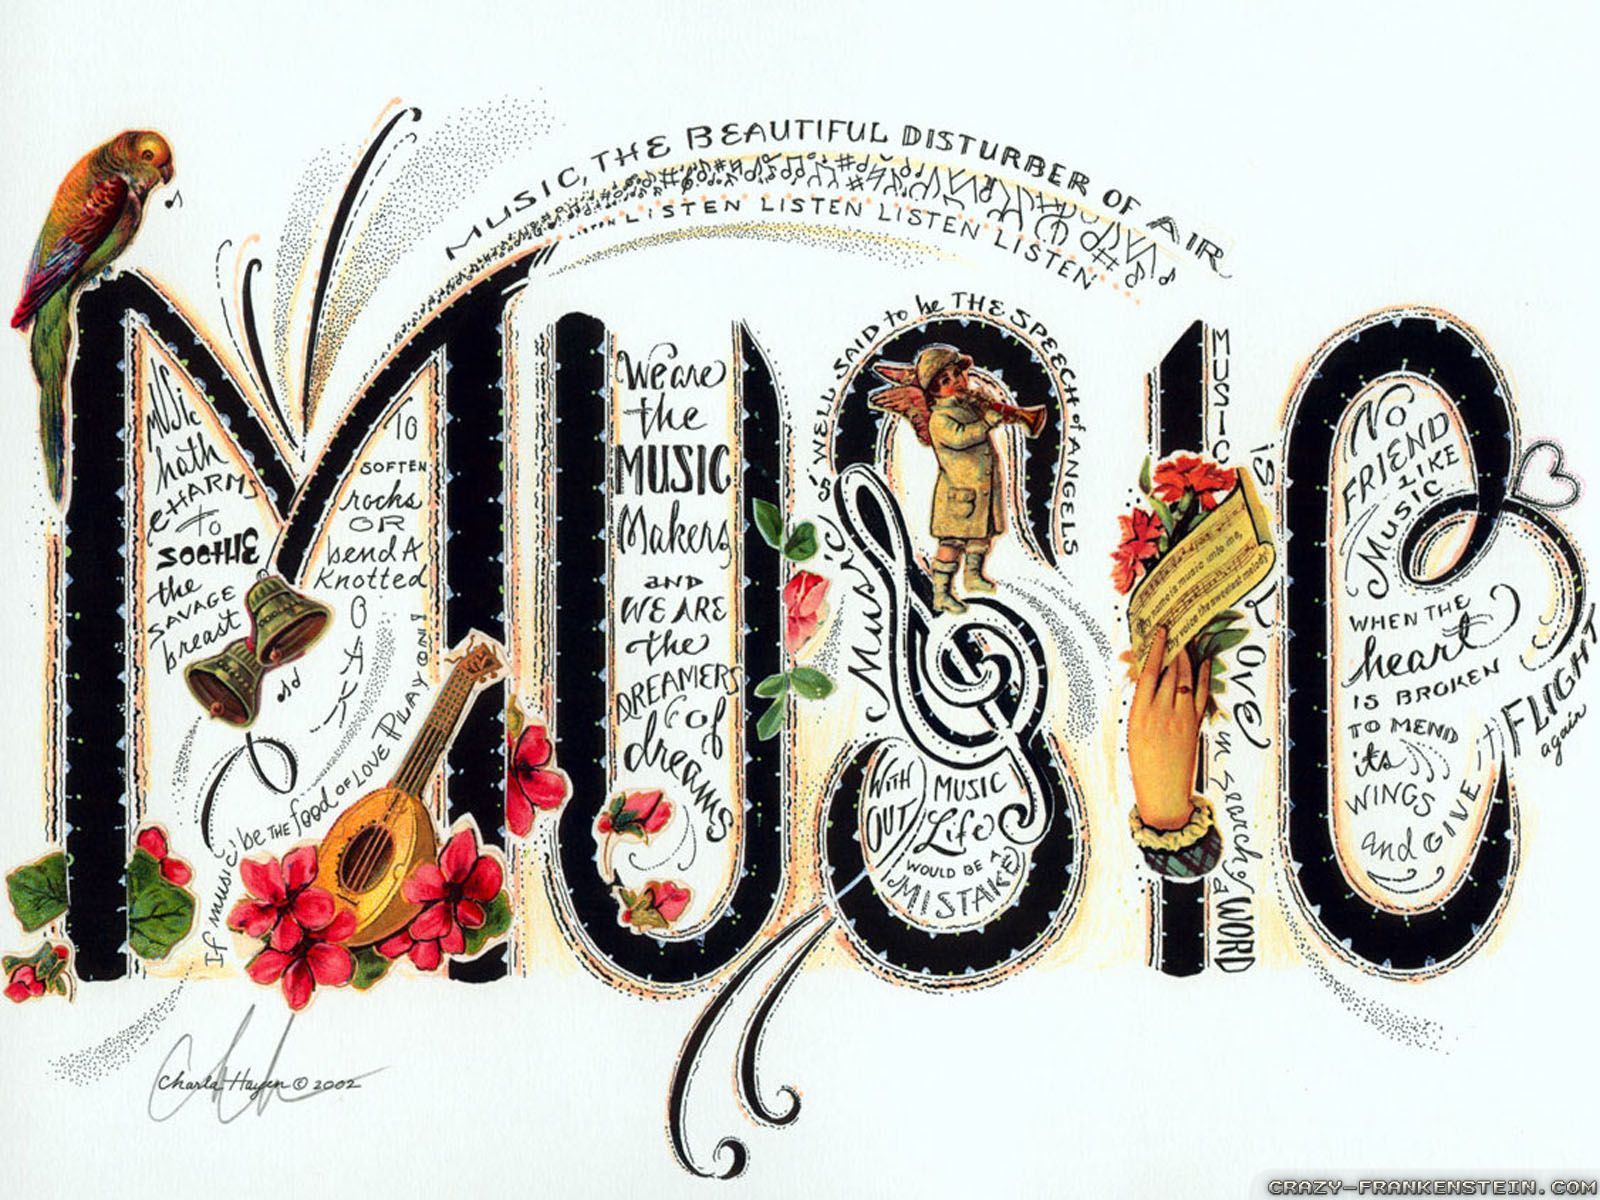 MUSIC, THE BEAUTIFUL DISTURBER OF AIR
LISTEN LISTEN LISTEN LISTEN LISTEN
MUSIC
MUSIC
hath
CHARMS
TO
SOOTHE
the
SAVAGE
breast
TO
SOFTEN
rocks
OR
bend A
KNOTTED
OAK
If music be THE food OF LOVE PLAY ON!
We are
the
MUSIC
Makers
AND
WE ARE
the
DREAMERS
of
dreams
Music is WELL SAID to be THE SPEECH of ANGELS
WITH
OUT
MUSIC
Life
WOULD BE A
MISTAKE
MUSIC is LOVE in search of a WORD
My name is music unto me,
My voice the sweetest melody
NO
FRIEND
LIKE
Music
WHEN THE
heart
IS BROKEN
TO MEND
its
WINGS
and GIVE it FLIGHT
again
Charla Hayen © 2002
CRAZY-FRANKENSTEIN.COM